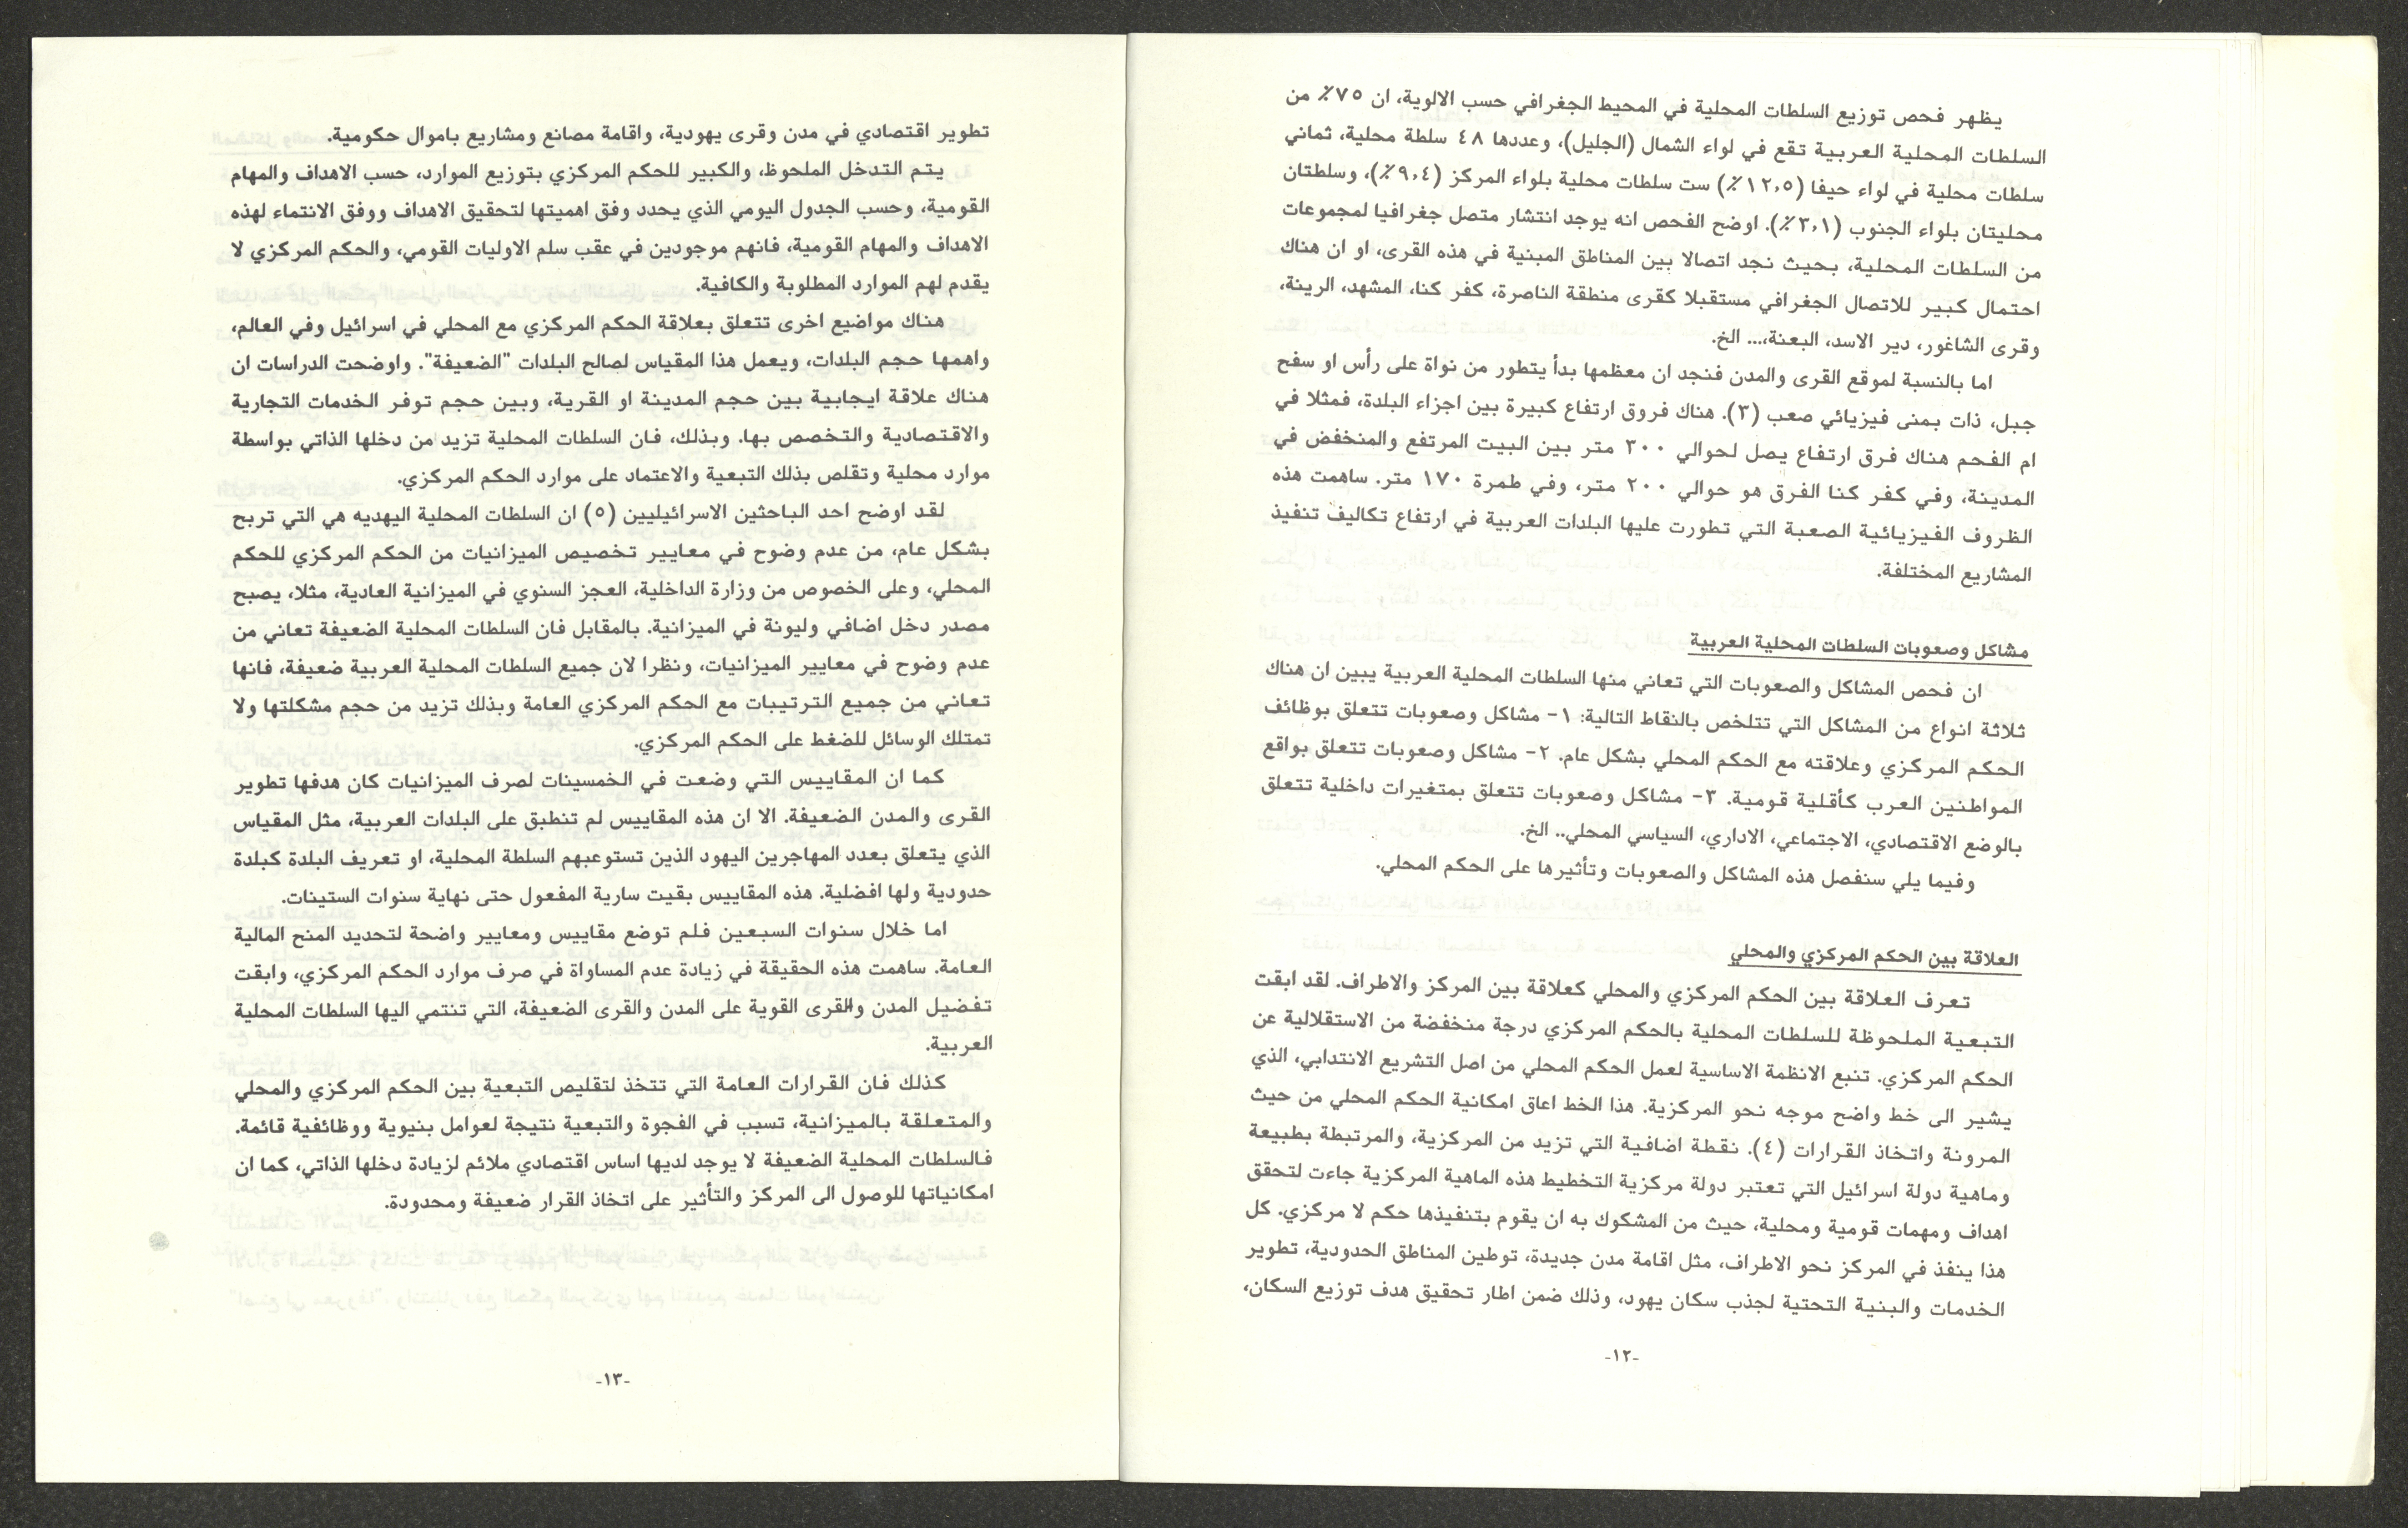 يظهر فحص توزيع السلطات المحلية في المحيط الجغرافي حسب الالوية، ان ٧٥٪ من
السلطات المحلية العربية تقع في لواء الشمال (الجليل)، وعددها ٤٨ سلطة محلية، ثماني
سلطات محلية في لواء حيفا (١٢,٥٪) ست سلطات محلية بلواء المركز (٩,٤٪)، وسلطتان
محليتان بلواء الجنوب (٣,١٪). اوضح الفحص انه يوجد انتشار متصل جغرافيا لمجموعات
من السلطات المحلية، بحيث نجد اتصالا بين المناطق المبنية في هذه القرى، او ان هناك
احتمال كبير للاتصال الجغرافي مستقبلا كقرى منطقة الناصرة، كفر كنا، المشهد، الرينة،
وقرى الشاغور، دير الاسد، البعنة،... الخ.
اما بالنسبة لموقع القرى والمدن فنجد ان معظمها بدأ يتطور من نواة على رأس او سفح
جبل، ذات بمنى فيزيائي صعب (٣). هناك فروق ارتفاع كبيرة بين اجزاء البلدة، فمثلا في
ام الفحم هناك فرق ارتفاع يصل لحوالي ٣٠٠ متر بين البيت المرتفع والمنخفض في
المدينة، وفي كفر كنا الفرق هو حوالي ٢٠٠ متر، وفي طمرة ١٧٠ متر. ساهمت هذه
الظروف الفيزيائية الصعبة التي تطورت عليها البلدات العربية في ارتفاع تكاليف تنفيذ
المشاريع المختلفة.
مشاكل وصعوبات السلطات المحلية العربية
ان فحص المشاكل والصعوبات التي تعاني منها السلطات المحلية العربية يبين ان هناك
ثلاثة انواع من المشاكل التي تتلخص بالنقاط التالية: ١- مشاكل وصعوبات تتعلق بوظائف
الحكم المركزي وعلاقته مع الحكم المحلي بشكل عام. ٢- مشاكل وصعوبات تتعلق بواقع
المواطنين العرب كأقلية قومية. ٣- مشاكل وصعوبات تتعلق بمتغيرات داخلية تتعلق
بالوضع الاقتصادي، الاجتماعي، الاداري، السياسي المحلي.. الخ.
وفيما يلي سنفصل هذه المشاكل والصعوبات وتأثيرها على الحكم المحلي.
العلاقة بين الحكم المركزي والمحلي
تعرف العلاقة بين الحكم المركزي والمحلي كعلاقة بين المركز والاطراف. لقد ابقت
التبعية الملحوظة للسلطات المحلية بالحكم المركزي درجة منخفضة من الاستقلالية عن
الحكم المركزي. تنبع الانظمة الاساسية لعمل الحكم المحلي من اصل التشريع الانتدابي، الذي
يشير الى خط واضح موجه نحو المركزية. هذا الخط اعاق امكانية الحكم المحلي من حيث
المرونة واتخاذ القرارات (٤). نقطة اضافية التي تزيد من المركزية، والمرتبطة بطبيعة
وماهية دولة اسرائيل التي تعتبر دولة مركزية التخطيط هذه الماهية المركزية جاءت لتحقق
اهداف ومهمات قومية ومحلية، حيث من المشكوك به ان يقوم بتنفيذها حكم لا مركزي. كل
هذا ينفذ في المركز نحو الاطراف، مثل اقامة مدن جديدة، توطين المناطق الحدودية، تطوير
الخدمات والبنية التحتية لجذب سكان يهود، وذلك ضمن اطار تحقيق هدف توزيع السكان،
-١٢-
تطوير اقتصادي في مدن وقرى يهودية، واقامة مصانع ومشاريع باموال حكومية.
يتم التدخل الملحوظ، والكبير للحكم المركزي بتوزيع الموارد، حسب الاهداف والمهام
القومية، وحسب الجدول اليومي الذي يحدد وفق اهميتها لتحقيق الاهداف ووفق الانتماء لهذه
الاهداف والمهام القومية، فانهم موجودين في عقب سلم الاوليات القومي، والحكم المركزي لا
يقدم لهم الموارد المطلوبة والكافية.
هناك مواضيع اخرى تتعلق بعلاقة الحكم المركزي مع المحلي في اسرائيل وفي العالم،
واهمها حجم البلدات، ويعمل هذا المقياس لصالح البلدات "الضعيفة". واوضحت الدراسات ان
هناك علاقة ايجابية بين حجم المدينة او القرية، وبين حجم توفر الخدمات التجارية
والاقتصادية والتخصص بها. وبذلك، فان السلطات المحلية تزيد من دخلها الذاتي بواسطة
موارد محلية وتقلص بذلك التبعية والاعتماد على موارد الحكم المركزي.
لقد اوضح احد الباحثين الاسرائيليين (٥) ان السلطات المحلية اليهديه هي التي تربح
بشكل عام، من عدم وضوح في معايير تخصيص الميزانيات من الحكم المركزي للحكم
المحلي، وعلى الخصوص من وزارة الداخلية، العجز السنوي في الميزانية العادية، مثلا، يصبح
مصدر دخل اضافي وليونة في الميزانية. بالمقابل فان السلطات المحلية الضعيفة تعاني من
عدم وضوح في معايير الميزانيات، ونظرا لان جميع السلطات المحلية العربية ضعيفة، فانها
تعاني من جميع الترتيبات مع الحكم المركزي العامة وبذلك تزيد من حجم مشكلتها ولا
تمتلك الوسائل للضغط على الحكم المركزي.
كما ان المقاييس التي وضعت في الخمسينات لصرف الميزانيات كان هدفها تطوير
القرى والمدن الضعيفة. الا ان هذه المقاييس لم تنطبق على البلدات العربية، مثل المقياس
الذي يتعلق بعدد المهاجرين اليهود الذين تستوعبهم السلطة المحلية، او تعريف البلدة كبلدة
حدودية ولها افضلية. هذه المقاييس بقيت سارية المفعول حتى نهاية سنوات الستينات.
اما خلال سنوات السبعين فلم توضع مقاييس ومعايير واضحة لتحديد المنح المالية
العامة. ساهمت هذه الحقيقة في زيادة عدم المساواة في صرف موارد الحكم المركزي، وابقت
تفضيل المدن والقرى القوية على المدن والقرى الضعيفة، التي تنتمي اليها السلطات المحلية
العربية.
كذلك فان القرارات العامة التي تتخذ لتقليص التبعية بين الحكم المركزي والمحلي
والمتعلقة بالميزانية، تسبب في الفجوة والتبعية نتيجة لعوامل بنيوية ووظائفية قائمة.
فالسلطات المحلية الضعيفة لا يوجد لديها اساس اقتصادي ملائم لزيادة دخلها الذاتي، كما ان
امكانياتها للوصول الى المركز والتأثير على اتخاذ القرار ضعيفة ومحدودة.
-١٣-